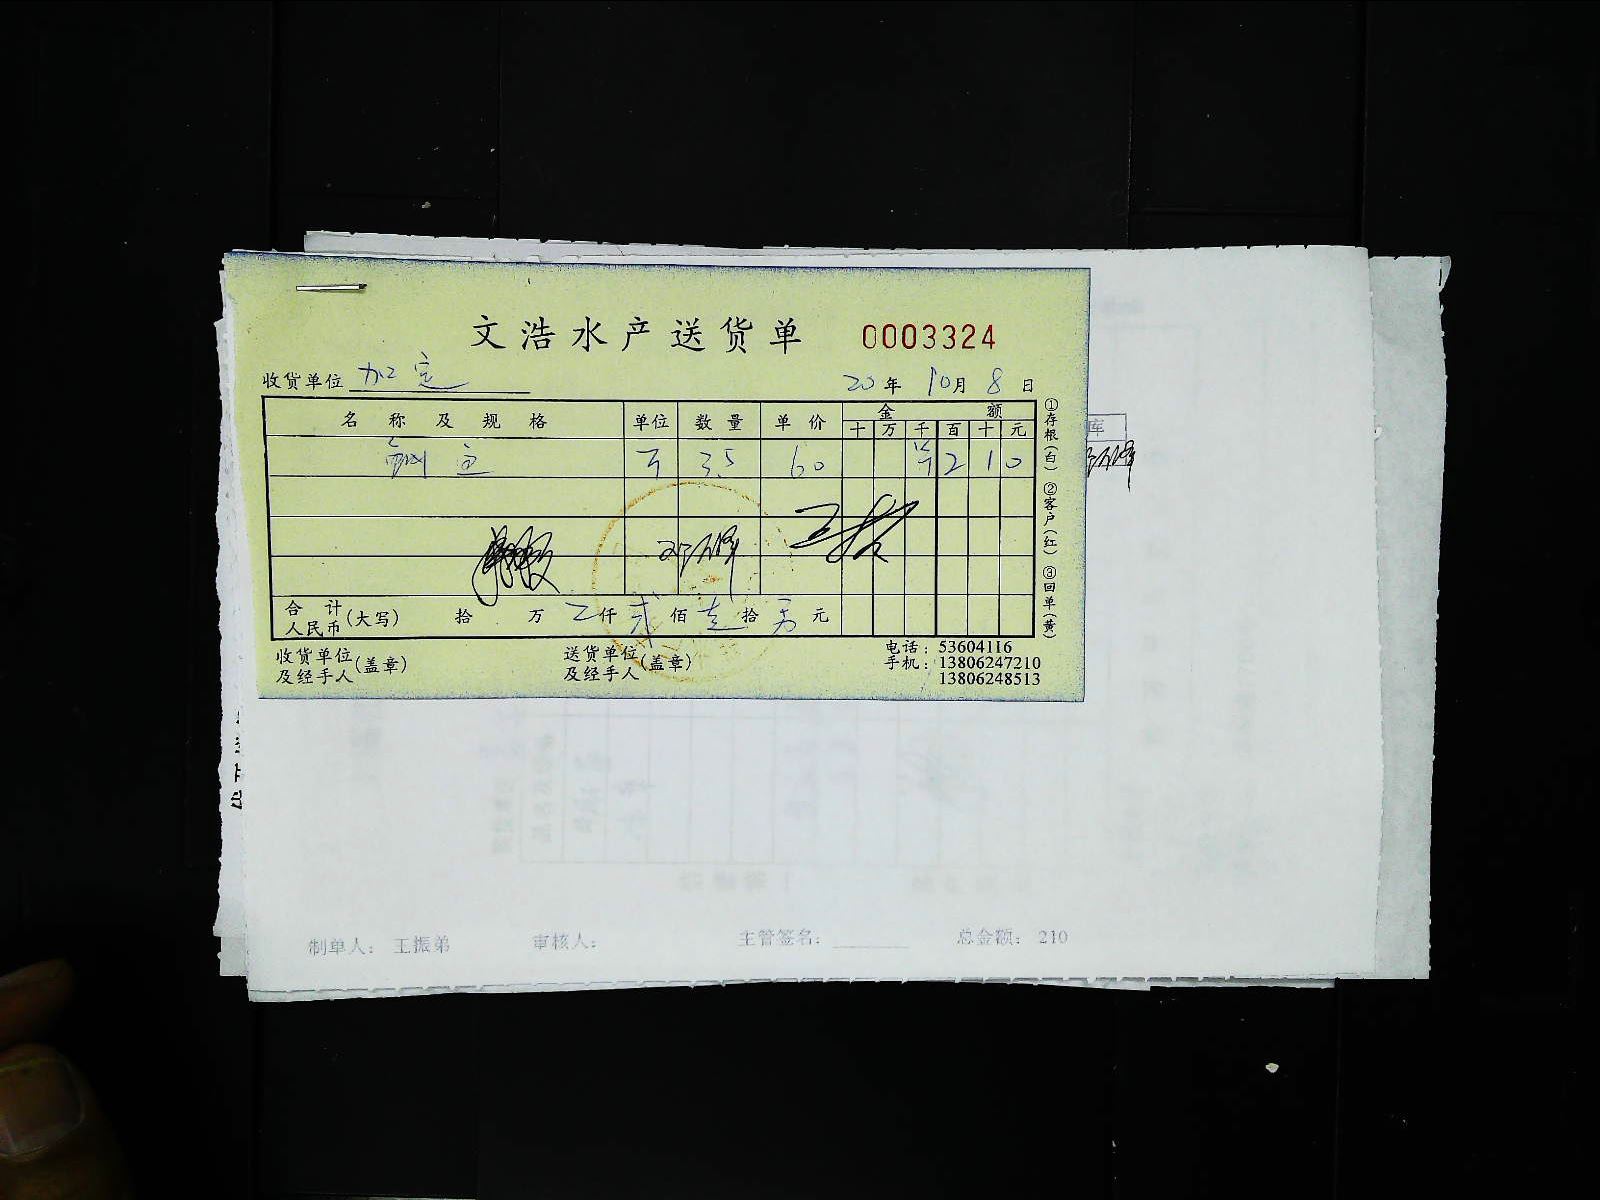 文浩水产送货单 0003324
收货单位 加定 20年10月8日
名称及规格 单位 数量 单价 金额
十 万 千 百 十 元
3.5 60 2 1 0
合计人民币(大写) 拾 万 仟 贰 佰 壹 拾 另 元
收货单位及经手人(盖章) 送货单位及经手人(盖章)
电话:53604116
手机:13806247210
13806248513
①存根(白) ②客户(红) ③回单(黄)
库
制单人: 王振弟 审核人: 主管签名: 总金额: 210